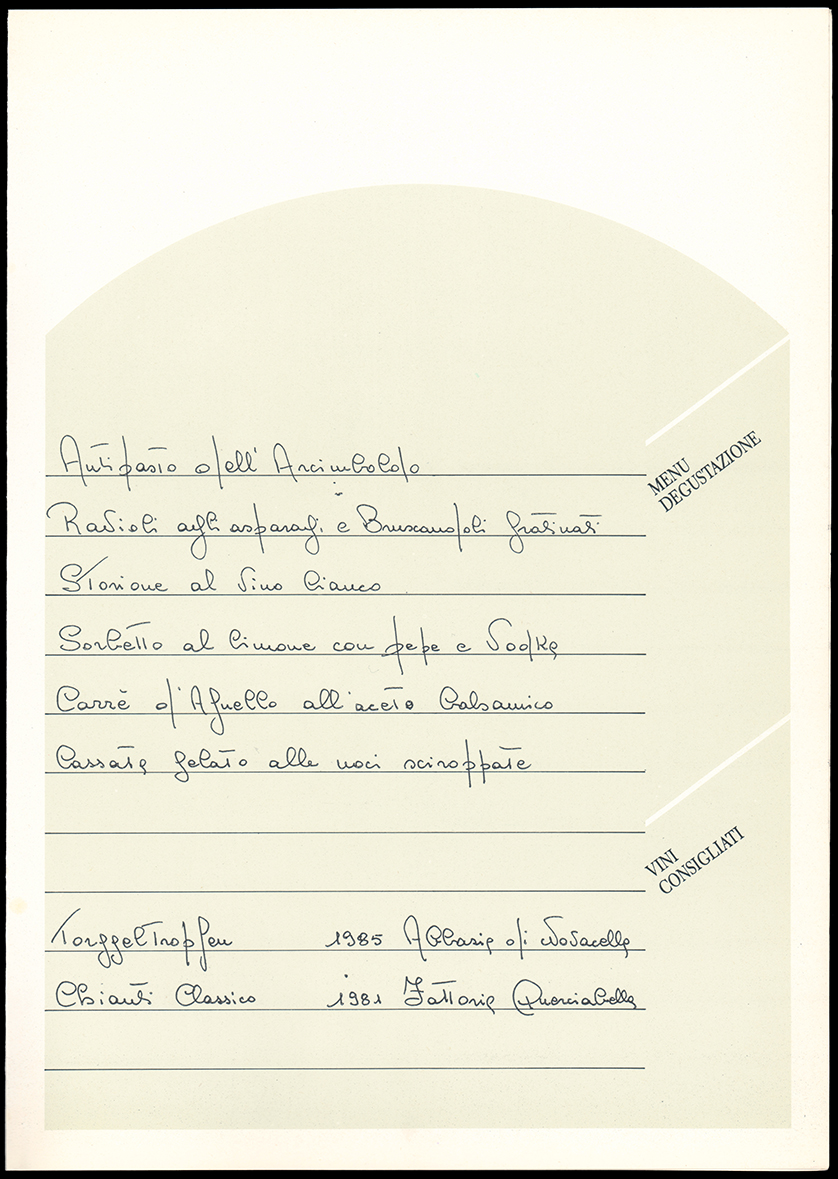 MENU
DEGUSTAZIONE
Antipasto dell'Arcimboldo
Ravioli agli asparagi e Bruscandoli gratinati
Storione al vino bianco
Sorbetto al limone con pepe e Vodka
Carrè d'Agnello all'aceto balsamico
Cassata gelato alle noci sciroppate
VINI
CONSIGLIATI
Torggeltropfen 1985 Abbazia di Novacella
Chianti Classico 1981 Fattoria Querciabella